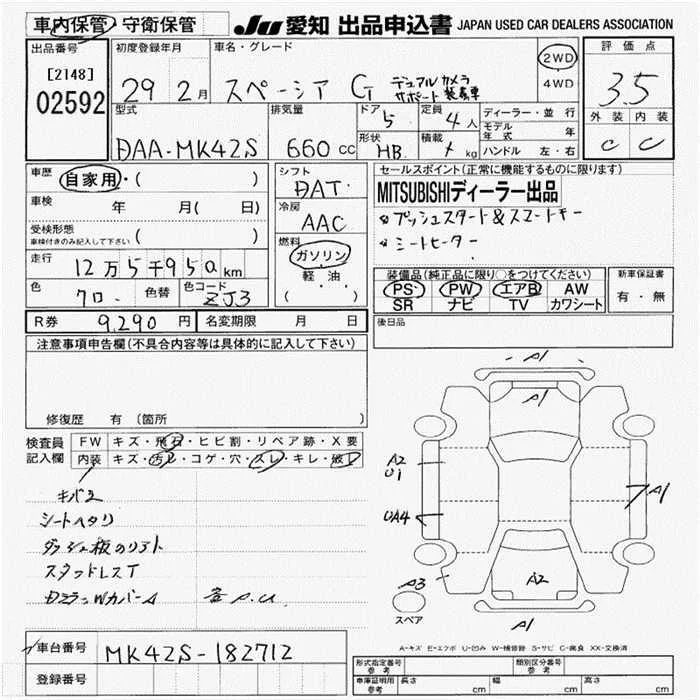 車内保管 守衛保管
JU 愛知 出品申込書 JAPAN USED CAR DEALERS ASSOCIATION
出品番号
[2148]
02592
初度登録年月
29 2月
車名・グレード
スペーシア G デュアルカメラ
サポート装着車
2WD
4WD
評価点
3.5
外装 内装
C C
型式
DAA-MK42S
排気量
660 CC
ドア
5
形状
HB
定員
4人
積載
kg
ディーラー・並行
モデル年式 年
ハンドル 左・右
車歴
自家用・( )
車検 年 月( 日)
受検形態
車検付きのみ記入して下さい ( )
走行
12万5千950km
色
クロ 色替 色コード
ZJ3
シフト
DAT
冷房
AAC
燃料
ガソリン
軽・油
( )
セールスポイント(正常に機能するものに限ります)
MITSUBISHIディーラー出品
プッシュスタート&スマートキー
シートヒーター
装備品(純正品に限り○をつけてください)
PS PW エアB AW
SR ナビ TV カワシート
新車保証書
有・無
R券 9,290円 名変期限 月 日
後日品
注意事項申告欄(不具合内容等は具体的に記入して下さい)
修復歴 有 〔箇所 〕
検査員
記入欄
FW キズ・飛石・ヒビ割・リペア跡・X要
内装 キズ・汚れ・コゲ・穴・スレ・キレ・破レ
シートヘタリ
スタッドレスT
A1
A1
A2
U1
UA4
A1
A3
A2
スペア
A-キズ E-エクボ U-凹み W-補修跡 S-サビ C-腐食 XX-交換済
車台番号 MK42S-182712
登録番号
形式指定番号
参考
類別区分番号
参考
車庫証明用
参考
長さ cm 幅 cm 高さ cm